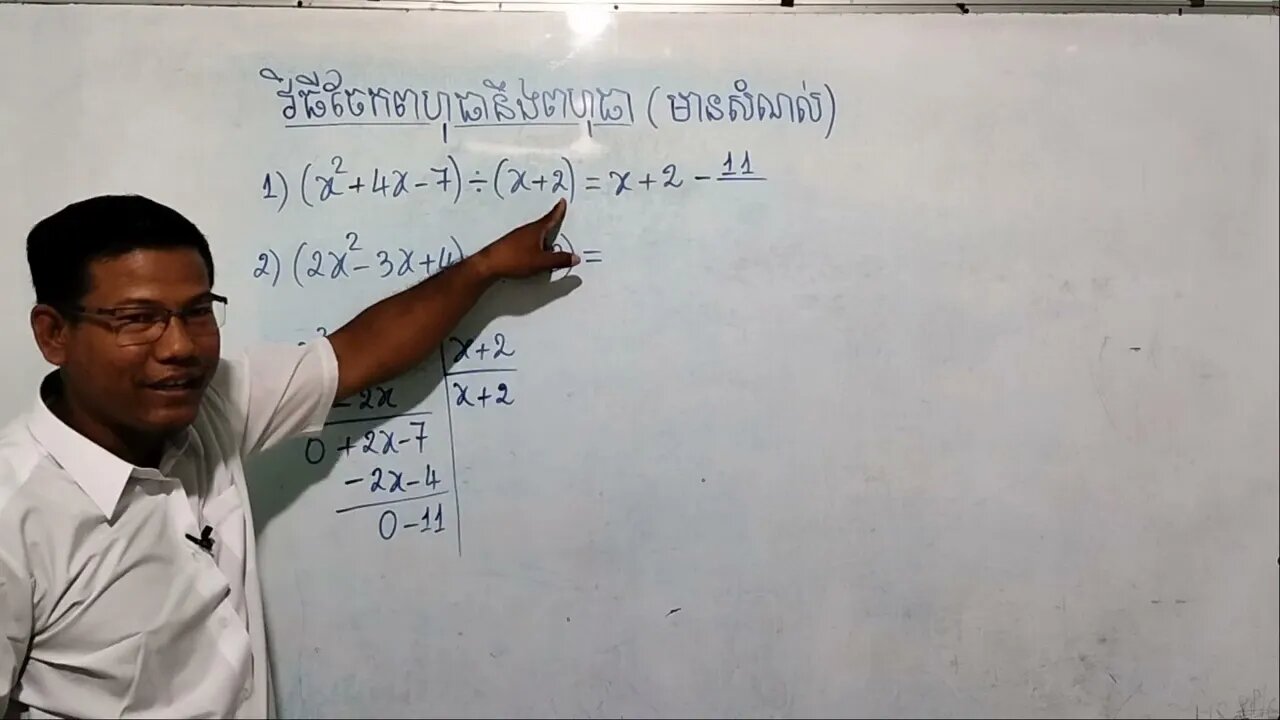 វិធីចែកពហុធានឹងពហុធា (មានសំណល់)
1) (x² + 4x - 7) ÷ (x + 2) = x + 2 - 11
2) (2x² - 3x + 4) ) =
x + 2
- 2x x + 2
0 + 2x - 7
- 2x - 4
0 - 11